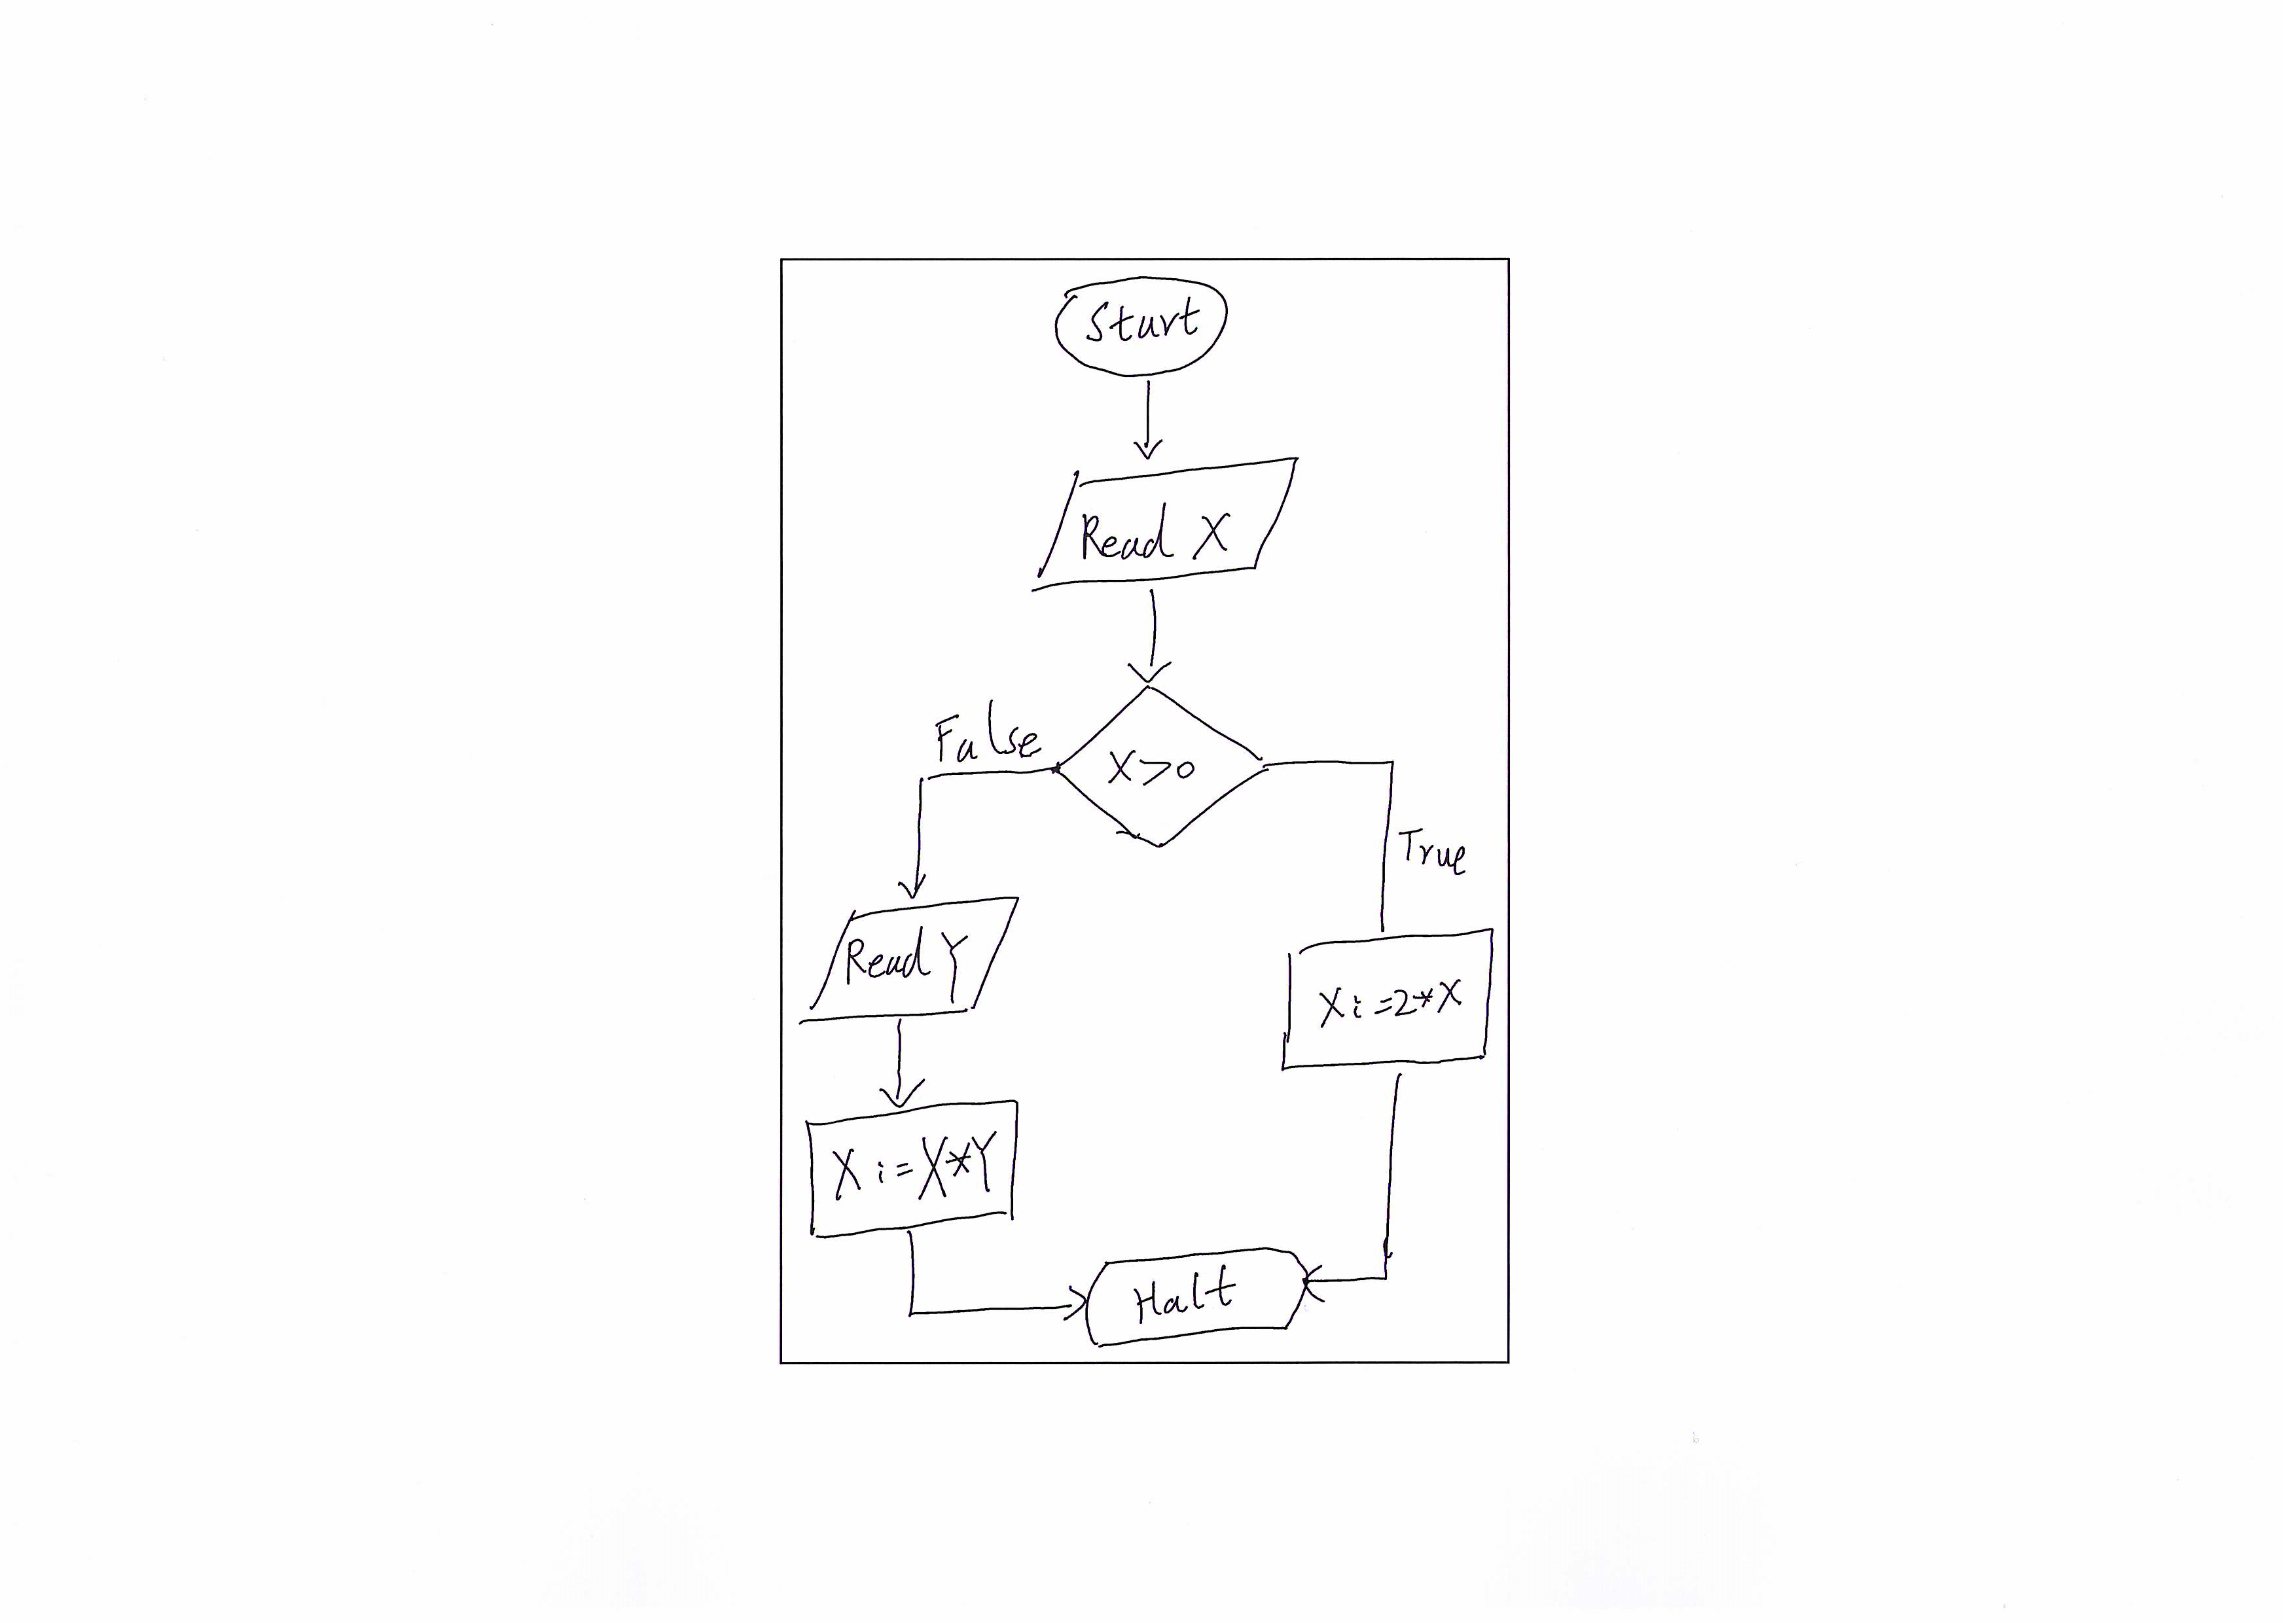 Start
Read X
X>0
False
True
Read Y
X:=2*X
X:=X*Y
Halt